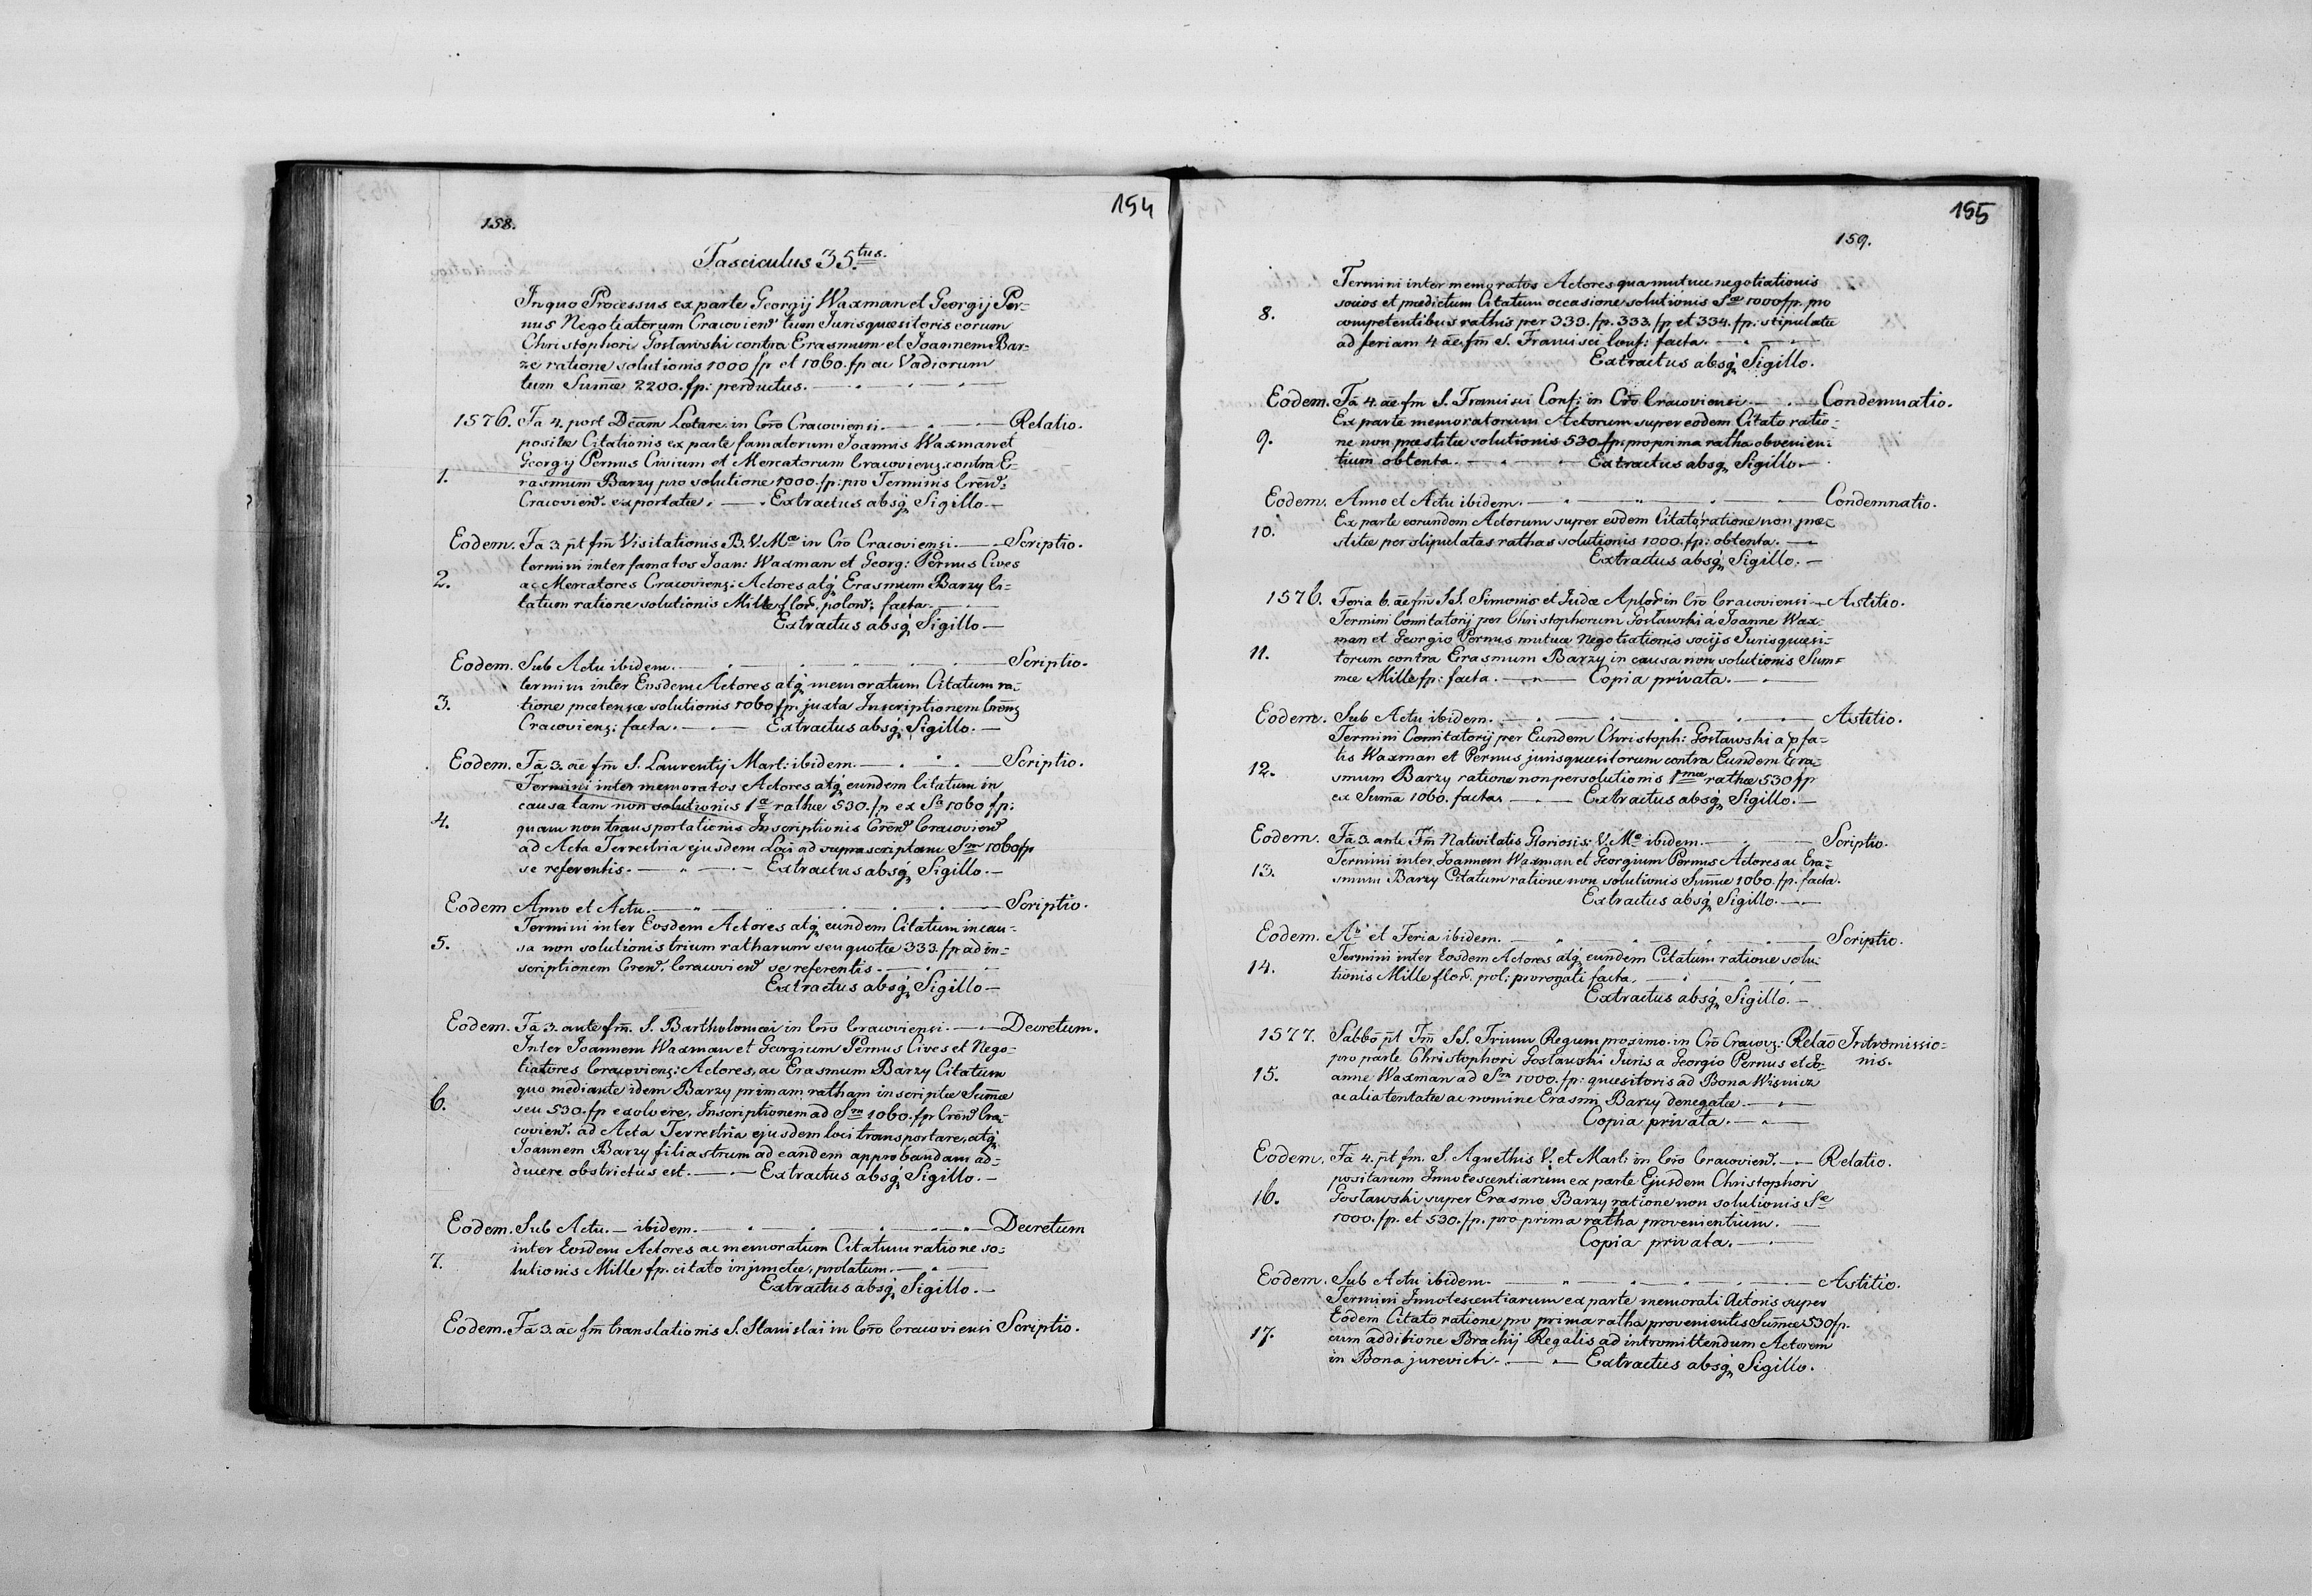 154
158.
Fasciculus 35.tus.
In quo Processus ex parte Georgij Waxman et Georgij Per-
nus Negotiatorum Cracovien' tum Jurisquæsitoris eorum
Christophori Gosławski contra Erasmum et Joannem Bar-
ze ratione solutionis 1000 fp et 1060. fp ac Vadiorum
tum Sumæ 2200. fp: perductus.
1576. Fã 4. post Dcãm Lætare in Crõ Cracoviensi. Relatio.
positæ Citationis ex parte famatorum Joannis Waxman et
Georgij Pernus Civium et Mercatorum Cracoviens. contra E-
1. rasmum Barzy pro solutione 1000. fp: pro Terminis Creñ.
Cracovien. exportatæ. Extractus absq Sigillo.
Eodem. Fã 3. pt fm Visitationis B. V. Mæ in Crõ Cracoviensi. Scriptio.
termini inter famatos Joan: Waxman et Georg: Pernus Cives
2. ac Mercatores Cracoviens: Actores atq Erasmum Barzy Ci-
tatum ratione solutionis Mille flor. polon: facta.
Extractus absq Sigillo
Eodem. Sub Actu ibidem. Scriptio.
termini inter Eosdem Actores atq memoratum Citatum ra-
3. tione prætensæ solutionis 1060 fp. juxta Inscriptionem Crens
Cracoviens: facta. Extractus absq Sigillo.
Eodem. Fã 3. ãe fm S. Laurentij Mart: ibidem. Scriptio.
Termini inter memoratos Actores atq eundem Citatum in
causa tam non solutionis 1æ rathæ 530. fp ex Sa 1060 fp:
4. quam non transportationis Inscriptionis Cren Cracovien
ad Acta Terrestria ejusdem Loci ad suprascriptam Sm 1060 fp
se referentis. Extractus absq Sigillo.
Eodem Anno et Actu. Scriptio.
Termini inter Eosdem Actores atq eundem Citatum in cau-
5. sa non solutionis trium ratharum seu quotæ 333. fp ad in-
scriptionem Cren. Cracovien se referentis.
Extractus absq Sigillo
Eodem. Fã 3. ante fm. S. Bartholomæi in Crõ Cracoviensi. Decretum.
Inter Joannem Waxman et Georgium Pernus Cives et Nego-
tiatores Cracoviens: Actores, ac Erasmum Barzy Citatum
quo mediante idem Barzy primam ratham inscriptæ Sumæ
6. seu 530. fp exolvere, Inscriptionem ad Sm 1060. fp Cren Cra-
covien. ad Acta Terrestria ejusdem loci transportare, atq
Joannem Barzy filiastrum ad eandem approbandam ad-
ducere obstrictus est. Extractus absq Sigillo.
Eodem. Sub Actu. ibidem. Decretum
inter Eosdem Actores ac memoratum Citatum ratione so-
7. lutionis Mille fp. citato injunctæ, prolatum.
Extractus absq Sigillo.
Eodem. Fã 3. ãe fm translationis S. Stanislai in Crõ Cracoviensi Scriptio.
155
159.
Termini inter memoratos Actores qua mutuæ negotiationis
socios et prædictum Citatum occasione solutionis Sæ 1000 fp. pro
8. competentibus rathis per 333. fp. 333. fp et 334. fp. stipulatæ
ad feriam 4 ãe fm S. Francisci Conf: facta.
Extractus absq Sigillo.
Eodem. Fã 4. ãe fm S. Francisci Conf: in Crõ Cracoviensi Condemnatio.
Ex parte memoratorum Actorum super eodem Citato ratio-
9. ne non præstitæ solutionis 530. fp. pro prima ratha obvenien-
tium obtenta. Extractus absq Sigillo
Eodem. Anno et Actu ibidem. Condemnatio.
Ex parte eorundem Actorum super eodem Citato ratione non præ-
10. stitæ per stipulatas rathas solutionis 1000. fp: obtenta.
Extractus absq Sigillo.
1576. Feria 6. ãe fm SS. Simonis et Judæ Aplor in Crõ Cracoviensi Astitio.
Termini Comitatorij per Christophorum Gosławski a Joanne Wax-
man et Georgio Pernus mutuæ negotiationis socijs Jurisquæsi-
11. torum contra Erasmum Barzy in causa non solutionis Sum-
mæ Mille fp: facta. Copia privata.
Eodem. Sub Actu ibidem. Astitio.
Termini Comitatorij per Eundem Christoph: Gosławski a pfa-
tis Waxman et Pernus jurisquæsitorum contra Eundem Era-
12. smum Barzy ratione non persolutionis 1mæ rathæ 530 fp
ex Suma 1060. facta. Extractus absq Sigillo.
Eodem. Fã 3. ante Fm Nativitatis Gloriosis: V. Mæ ibidem. Scriptio.
Termini inter Joannem Waxman et Georgium Pernus Actores ac Era-
13. smum Barzy Citatum ratione non solutionis Sumæ 1060. fp. facta.
Extractus absq Sigillo.
Eodem. Ao et Feria ibidem. Scriptio.
Termini inter Eosdem Actores atq eundem Citatum ratione solu-
14. tionis Mille flor. pol: prorogati facta.
Extractus absq Sigillo.
1577. Sabbõ pt Fm SS. Trium Regum proximo. in Crõ Cracovs: Relaõ Intromissio-
pro parte Christophori Gosławski Juris a Georgio Pernus et Jo- nis.
15. anne Waxman ad Sm 1000. fp: quæsitoris ad Bona Wisnicz
ac alia tentatæ ac nomine Erasmi Barzy denegatæ.
Copia privata.
Eodem. Fã 4. pt fm. S. Agnethis V. et Mart: in Crõ Cracovien. Relatio.
positarum Innotescentiarum ex parte Ejusdem Christophori
16. Gosławski super Erasmo Barzy ratione non solutionis Sæ
1000. fp. et 530. fp. pro prima ratha provenientium.
Copia privata.
Eodem. Sub Actu ibidem. Astitio.
Termini Innotescentiarum ex parte memorati Actoris super
Eodem Citato ratione pro prima ratha provenientis Sumæ 530 fp.
17. cum additione Brachij Regalis ad intromittendum Actorem
in Bona jurevicti. Extractus absq Sigillo.